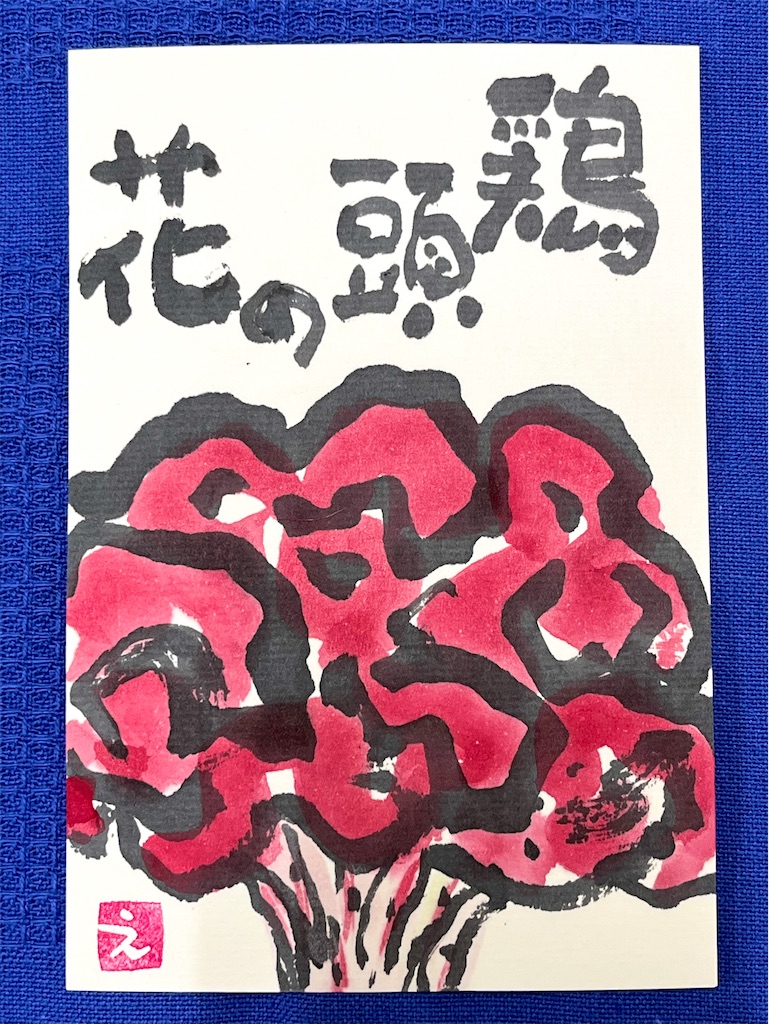 鶏頭の花
え